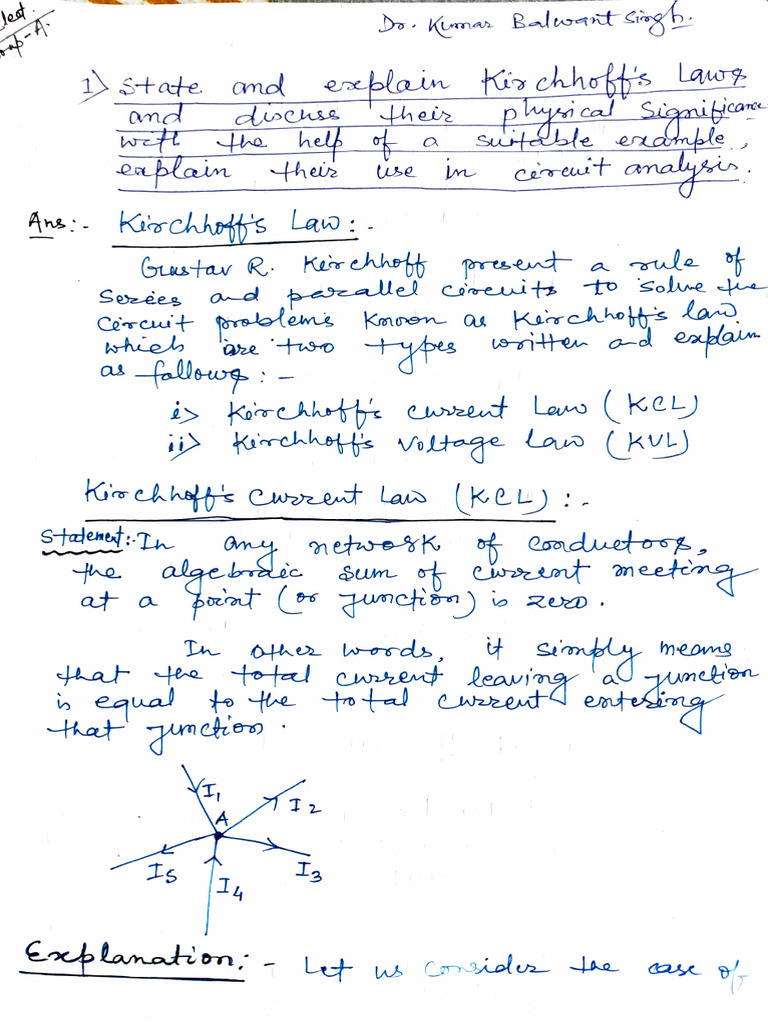 Dr. Kumar Balwant Singh.
1) State and explain Kirchhoff's Laws
and discuss their physical Significance
with the help of a suitable example,
explain their use in circuit analysis.
Ans:- Kirchhoff's Law:-
Gustav R. Kirchhoff present a rule of
Series and parallel circuits to solve the
circuit problems known as Kirchhoff's law
which are two types written and explain
as follows:-
i> Kirchhoff's current Law (KCL)
ii> Kirchhoff's Voltage Law (KVL)
Kirchhoff's Current Law (KCL):-
Statement:- In any network of conductors,
the algebraic sum of current meeting
at a point (or junction) is zero.
In other words, it simply means
that the total current leaving a junction
is equal to the total current entering
that junction.
I1
A
I2
I5
I4
I3
Explanation:- Let us consider the case of